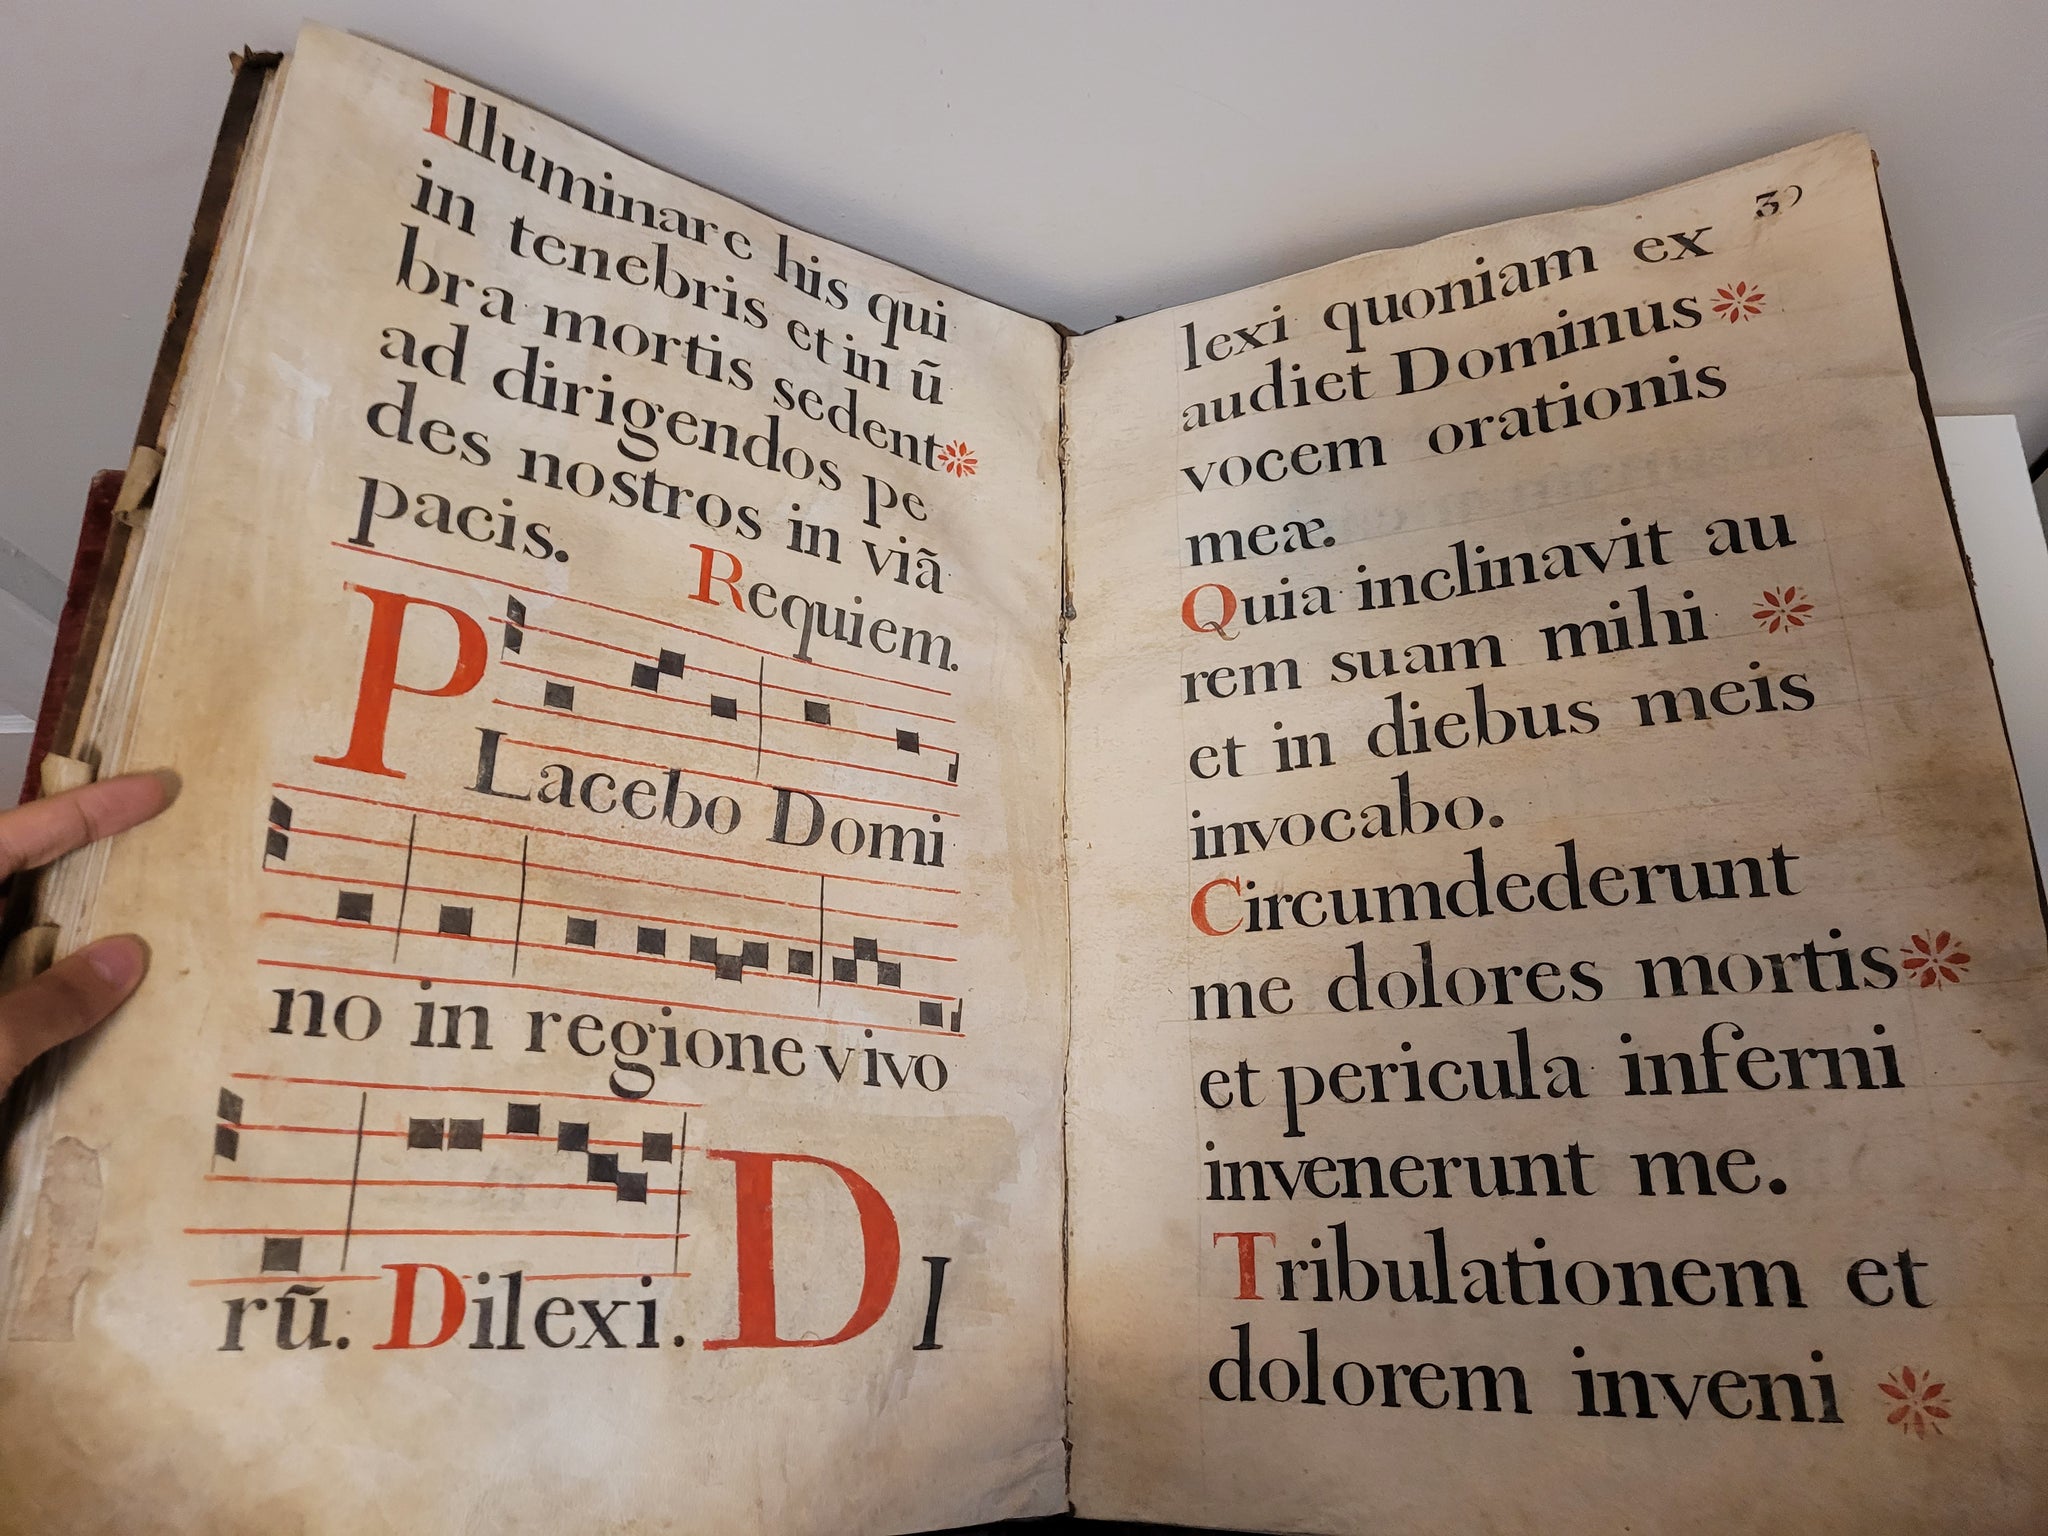 Illuminare his qui
in tenebris et in ũ
bra mortis sedent
ad dirigendos pe
des nostros in viã
pacis. Requiem.
PLacebo Domi
no in regione vivo
rũ. Dilexi. DI
39
lexi quoniam ex
audiet Dominus
vocem orationis
meæ.
Quia inclinavit au
rem suam mihi
et in diebus meis
invocabo.
Circumdederunt
me dolores mortis
et pericula inferni
invenerunt me.
Tribulationem et
dolorem inveni